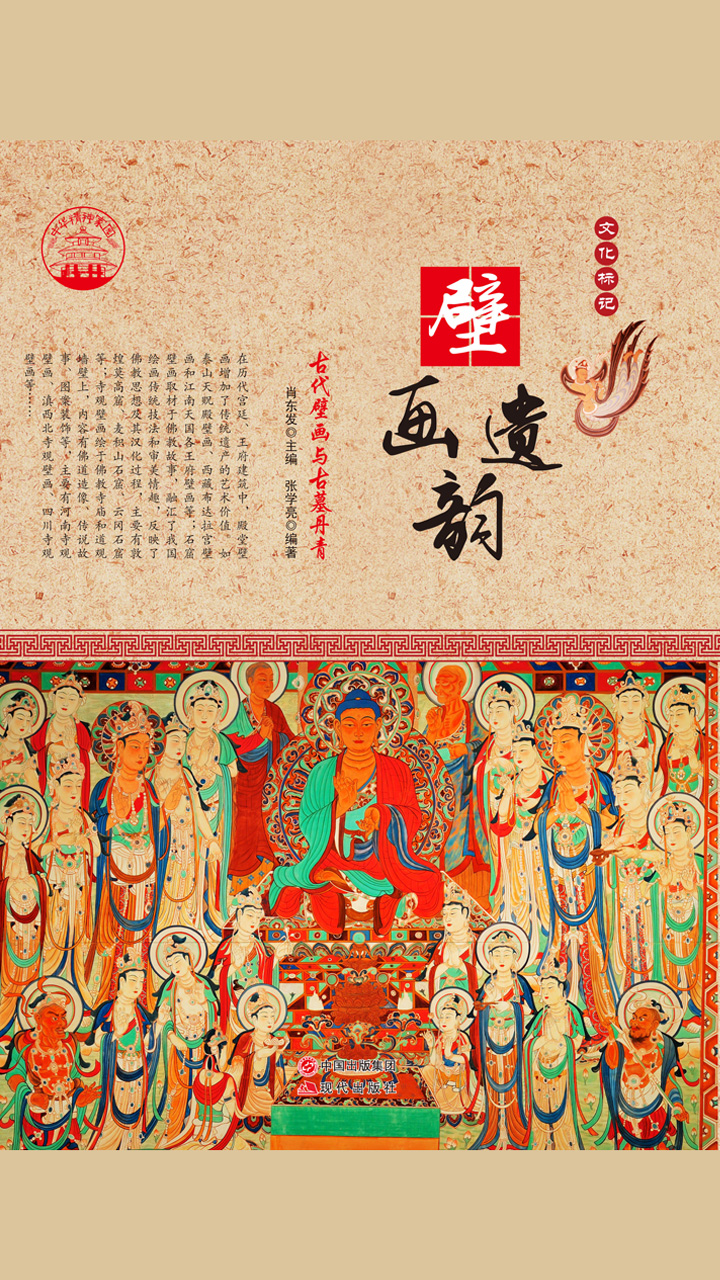 文化标记
壁
画遗韵
古代壁画与古墓丹青
肖东发◎主编　张学亮◎编著
中华精神家园
在历代宫廷、王府建筑中，殿堂壁
画增加了传统遗产的艺术价值。如
泰山天贶殿壁画、西藏布达拉宫壁
画和江南天国各王府壁画等；石窟
壁画取材于佛教故事，融汇了我国
绘画传统技法和审美情趣，反映了
佛教思想及其汉化过程，主要有敦
煌莫高窟、麦积山石窟、云冈石窟
等；寺观壁画绘于佛教寺庙和道观
墙壁上，内容有佛道造像、传说故
事、图案装饰等，主要有河南寺观
壁画、滇西北寺观壁画、四川寺观
壁画等……
中国出版集团
现代出版社